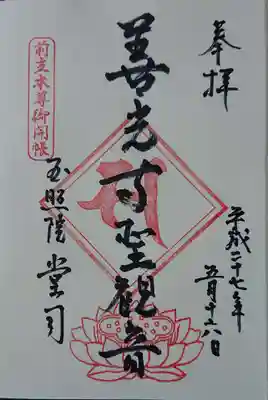 奉拝
平成二十七年
五月十六日
善光寺聖観音
前立本尊御開帳
玉照院堂司